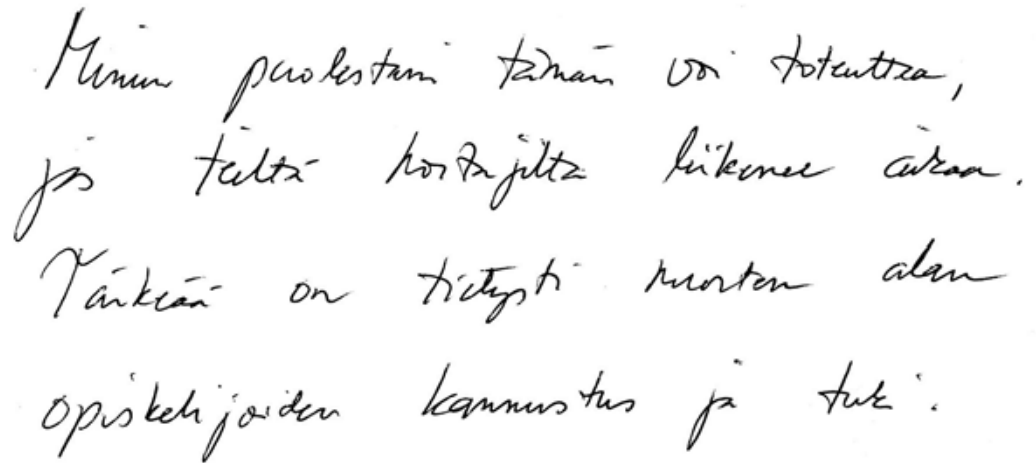 Minun puolestani tämän voi toteuttaa,
jos teiltä hoitajilta liikenee aikaa.
Tärkeää on tietysti nuorten alan
opiskelijoiden kannustus ja tuki.